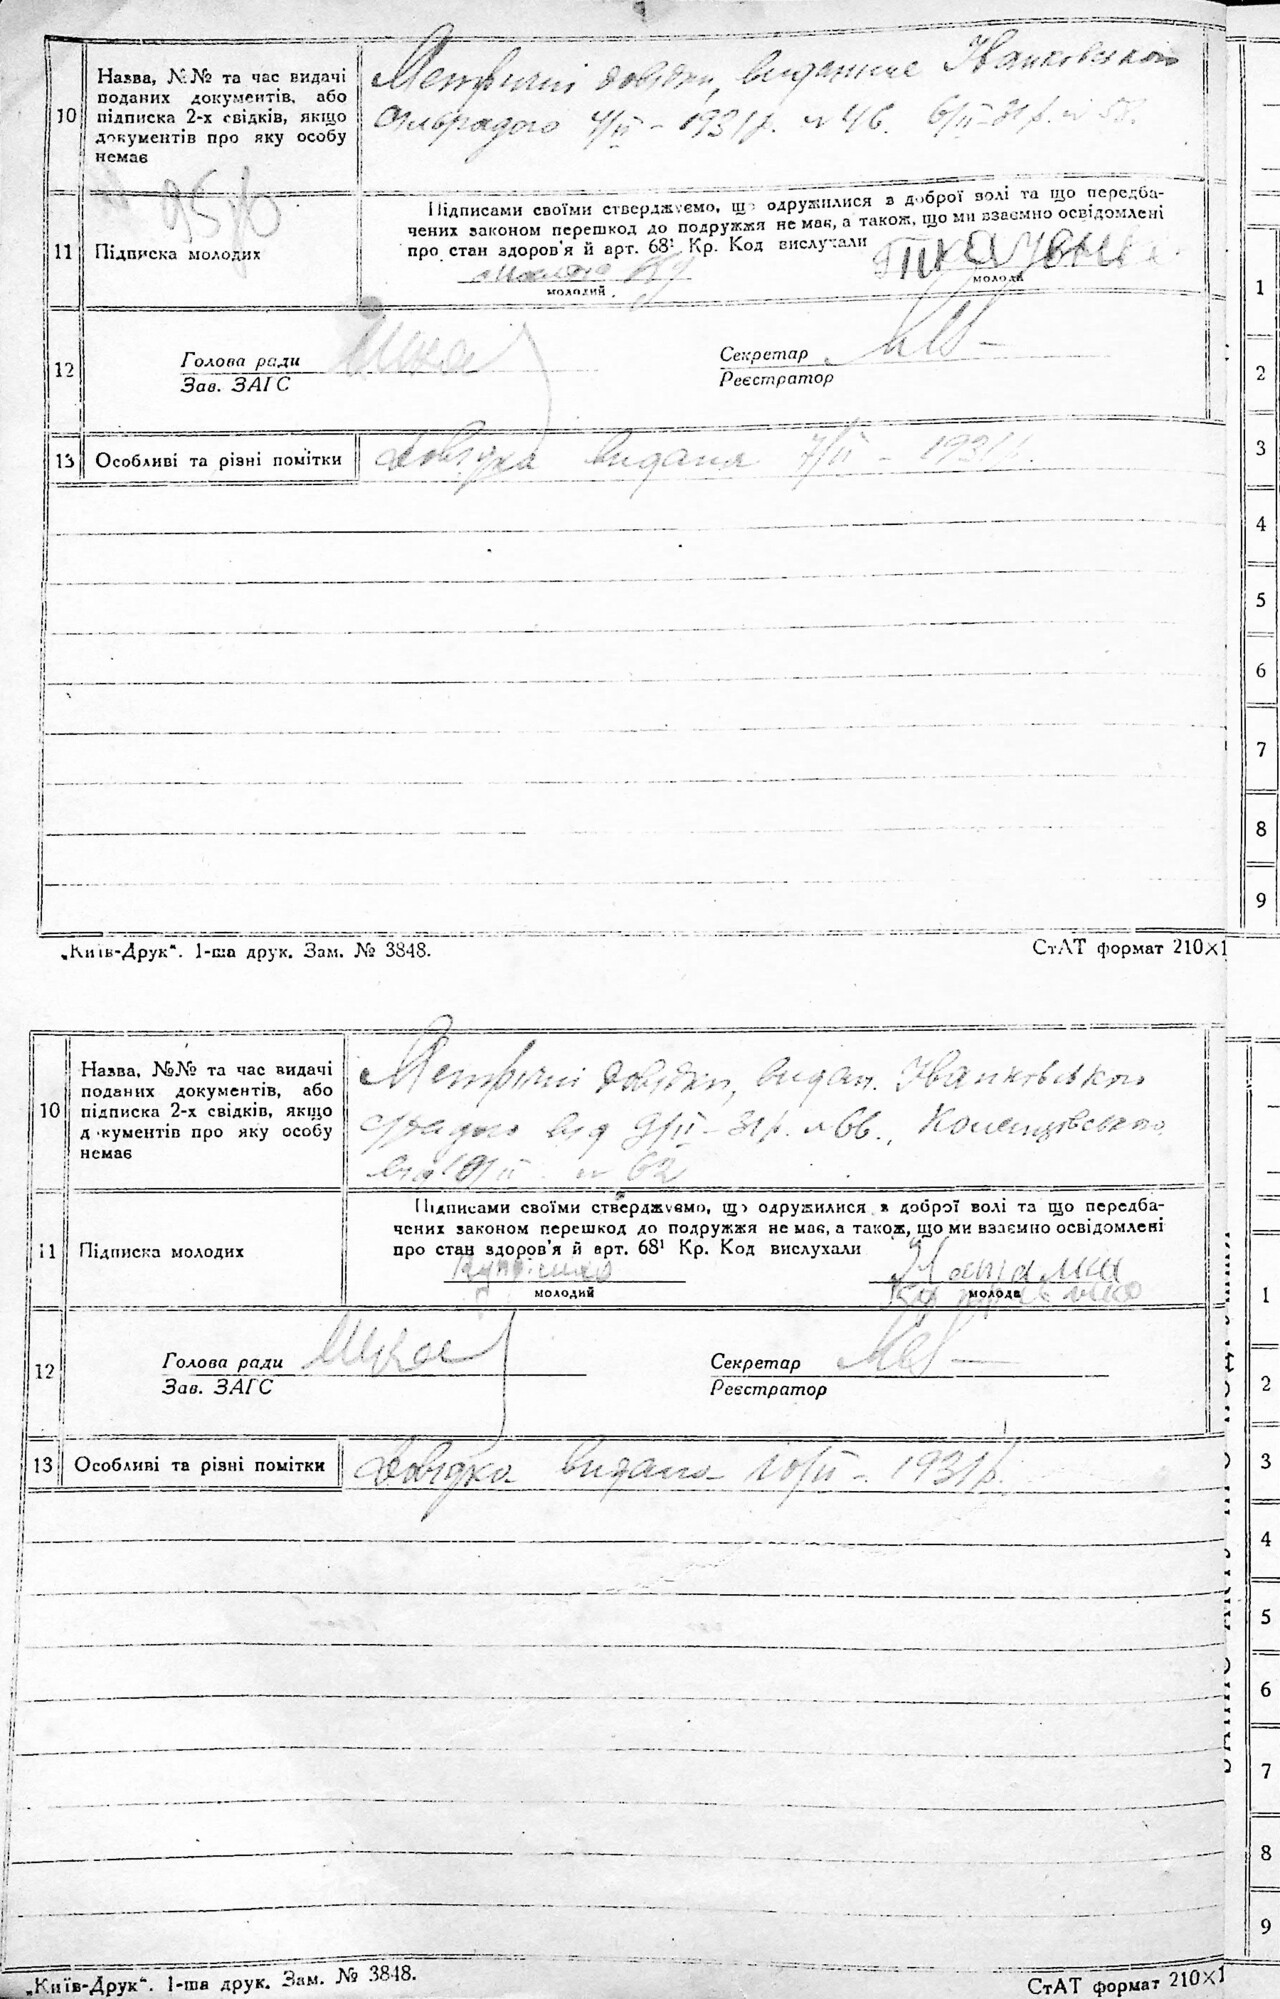 10
Назва, №№ та час видачі
поданих документів, або
підписка 2-х свідків, якщо
документів про яку особу
немає
Метричні довідки, виданние Іванковською
сільрадою 4/II – 1931 р. № 46. 6/II–31 р. № 58.
95
11
Підписка молодих
Підписами своїми стверджуємо, що одружилися в доброї волі та що передба-
чених законом перешкод до подружжя не має, а також, що ми взаємно освідомлені
про стан здоров'я й арт. 68¹ Кр. Код вислухали
молодий
молода
12
Голова ради
Зав. ЗАГС
Секретар
Реєстратор
13
Особливі та різні помітки
Довідка видана 7/II – 1931 р.
„Київ-Друк“. 1-ша друк. Зам. № 3848.
СтАТ формат 210×1
10
Назва, №№ та час видачі
поданих документів, або
підписка 2-х свідків, якщо
документів про яку особу
немає
Метричні довідки, видан. Іванковською
від 9/II – 31 р. № 66.,
від 9/II № 62
11
Підписка молодих
Підписами своїми стверджуємо, що одружилися в доброї волі та що передба-
чених законом перешкод до подружжя не має, а також, що ми взаємно освідомлені
про стан здоров'я й арт. 68¹ Кр. Код вислухали
молодий
Наталка
молода
12
Голова ради
Зав. ЗАГС
Секретар
Реєстратор
13
Особливі та різні помітки
Довідка видана 10/II – 1931 р.
„Київ-Друк“. 1-ша друк. Зам. № 3848.
СтАТ формат 210×1
1
2
3
4
5
6
7
8
9
1
2
3
4
5
6
7
8
9